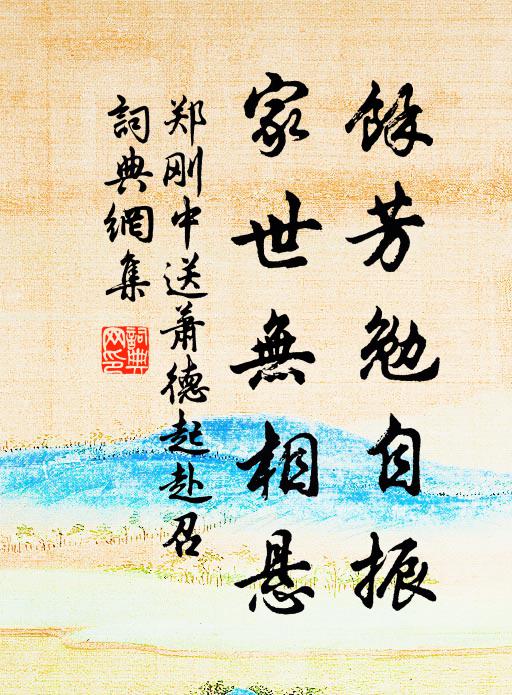 餘芳勉自振
家世無相懸
郑刚中送萧德起赴召
詞典網集
詞典網印